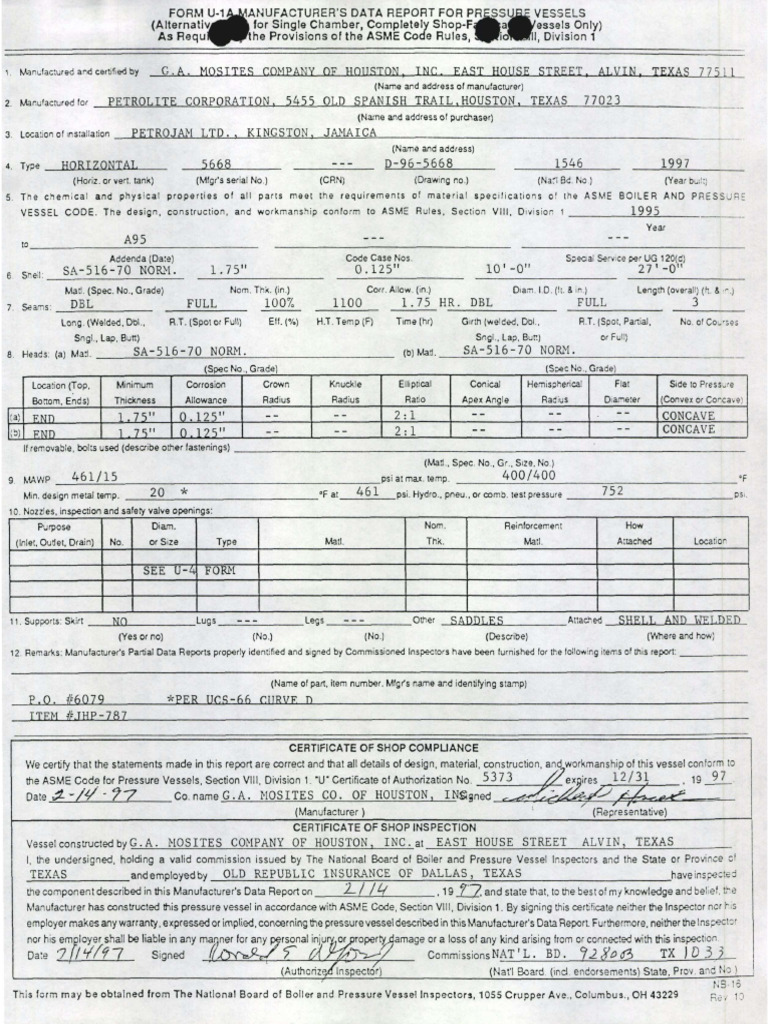 FORM U-1A MANUFACTURER'S DATA REPORT FOR PRESSURE VESSELS
(Alternative for Single Chamber, Completely Shop- Vessels Only)
As the Provisions of the ASME Code Rules, Division 1
1. Manufactured and certified by G.A. MOSITES COMPANY OF HOUSTON, INC. EAST HOUSE STREET, ALVIN, TEXAS 77511
(Name and address of manufacturer)
2. Manufactured for PETROLITE CORPORATION, 5455 OLD SPANISH TRAIL,HOUSTON, TEXAS 77023
(Name and address of purchaser)
3. Location of installation PETROJAM LTD., KINGSTON, JAMAICA
(Name and address)
4. Type HORIZONTAL 5668 --- D-96-5668 1546 1997
(Horiz. or vert. tank) (Mfgr's serial No.) (CRN) (Drawing no.) (Nat'l Bd. No.) (Year built)
5. The chemical and physical properties of all parts meet the requirements of material specifications of the ASME BOILER AND PRESSURE
VESSEL CODE. The design, construction, and workmanship conform to ASME Rules, Section VIII, Division 1 1995
Year
to A95 --- ---
Addenda (Date) Code Case Nos. Special Service per UG 120(d)
6. Shell: SA-516-70 NORM. 1.75" 0.125" 10'-0" 27'-0"
Matl. (Spec. No., Grade) Nom. Thk. (in.) Corr. Allow. (in.) Diam. I.D. (ft. & in.) Length (overall) (ft. & in.)
7. Seams: DBL FULL 100% 1100 1.75 HR. DBL FULL 3
Long. (Welded, Dbl., R.T. (Spot or Full) Eff. (%) H.T. Temp (F) Time (hr) Girth (welded, Dbl., R.T. (Spot, Partial, No. of Courses
Sngl., Lap, Butt) Sngl., Lap, Butt) or Full)
8. Heads: (a) Matl. SA-516-70 NORM. (b) Matl. SA-516-70 NORM.
(Spec No., Grade) (Spec No., Grade)
Location (Top, Minimum Corrosion Crown Knuckle Elliptical Conical Hemispherical Flat Side to Pressure
Bottom, Ends) Thickness Allowance Radius Radius Ratio Apex Angle Radius Diameter (Convex or Concave)
(a) END 1.75" 0.125" -- -- 2:1 -- -- -- CONCAVE
(b) END 1.75" 0.125" -- -- 2:1 -- -- -- CONCAVE
If removable, bolts used (describe other fastenings)
(Matl., Spec. No., Gr., Size, No.)
9. MAWP 461/15 psi at max. temp. 400/400 °F
Min. design metal temp. 20 * °F at 461 psi. Hydro., pneu., or comb. test pressure 752 psi.
10. Nozzles, inspection and safety valve openings:
Purpose Diam. Nom. Reinforcement How
(Inlet, Outlet, Drain) No. or Size Type Matl. Thk. Matl. Attached Location
SEE U-4 FORM
11. Supports: Skirt NO Lugs --- Legs --- Other SADDLES Attached SHELL AND WELDED
(Yes or no) (No.) (No.) (Describe) (Where and how)
12. Remarks: Manufacturer's Partial Data Reports properly identified and signed by Commissioned Inspectors have been furnished for the following items of this report:
(Name of part, item number. Mfgr's name and identifying stamp)
P.O. #6079 *PER UCS-66 CURVE D
ITEM #JHP-787
CERTIFICATE OF SHOP COMPLIANCE
We certify that the statements made in this report are correct and that all details of design, material, construction, and workmanship of this vessel conform to
the ASME Code for Pressure Vessels, Section VIII, Division 1. "U" Certificate of Authorization No. 5373 expires 12/31 , 19 97
Date 2-14-97 Co. name G.A. MOSITES CO. OF HOUSTON, INC. Signed
(Manufacturer) (Representative)
CERTIFICATE OF SHOP INSPECTION
Vessel constructed by G.A. MOSITES COMPANY OF HOUSTON, INC. at EAST HOUSE STREET ALVIN, TEXAS
I, the undersigned, holding a valid commission issued by The National Board of Boiler and Pressure Vessel Inspectors and the State or Province of
TEXAS and employed by OLD REPUBLIC INSURANCE OF DALLAS, TEXAS have inspected
the component described in this Manufacturer's Data Report on 2/14 , 1997 and state that, to the best of my knowledge and belief, the
Manufacturer has constructed this pressure vessel in accordance with ASME Code, Section VIII, Division 1. By signing this certificate neither the Inspector nor his
employer makes any warranty, expressed or implied, concerning the pressure vessel described in this Manufacturer's Data Report. Furthermore, neither the Inspector
nor his employer shall be liable in any manner for any personal injury or property damage or a loss of any kind arising from or connected with this inspection.
Date 2/14/97 Signed Commissions NAT'L. BD. 928003 TX 1033
(Authorized Inspector) (Nat'l Board. (incl. endorsements) State, Prov. and No.)
NB-16
This form may be obtained from The National Board of Boiler and Pressure Vessel Inspectors, 1055 Crupper Ave., Columbus, OH 43229 Rev 10